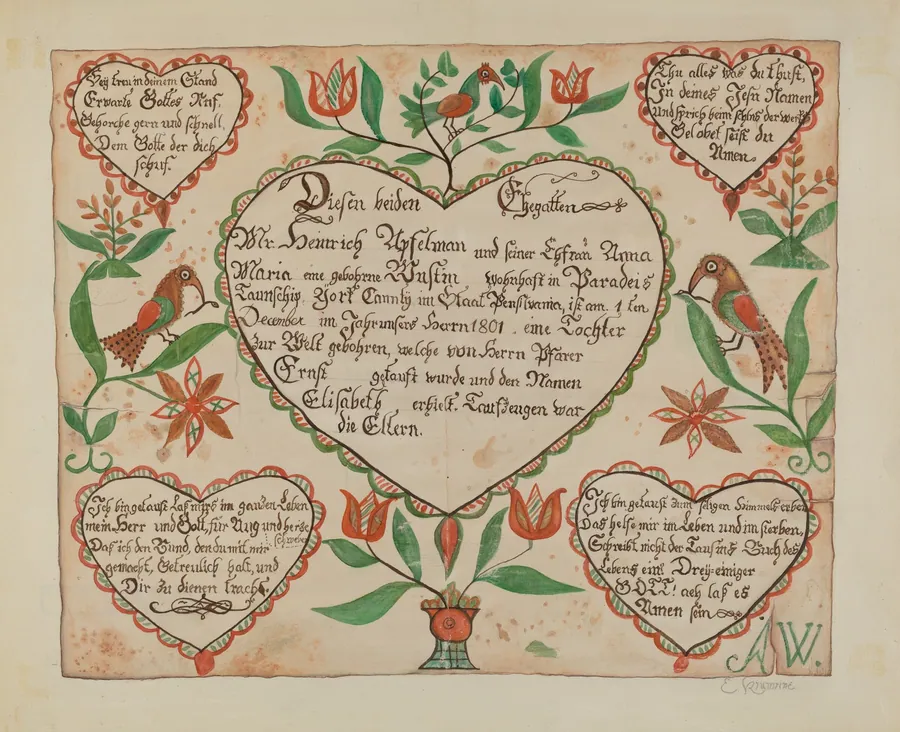 Sey treu in deinem Stand
Erwarte Gottes Ruf.
Gehorche gern und schnell,
Dem Gotte der dich
schuf.
Thu alles was du thust,
In deines Jesu Namen
und sprich beim schlus der werke
Gelobet seist du
Amen.
Diesen beiden Ehegatten
Mr. Heinrich Apfelman und seiner Ehfrau Anna
Maria eine gebohrne Wustin wohnhaft in Paradeis
Taunschip. York Caunty im Staat Pensilvania, ist am. 1ten
December im Jahr unsers Herrn 1801. eine Tochter
zur Welt gebohren, welche von Herrn Pfarer
Ernst getauft wurde und den Namen
Elisabeth erhielt. Taufzeugen war
die Eltern.
Ich bin getauft Laß mirs im ganzen Leben
mein Herr und Gott, für Aug und herze
schweben
Daß ich den Bund, den du mit mir
gemacht, Getreulich halt, und
Dir zu dienen tracht.
Ich bin getauft zum seligen Himmels erben
Das helf mir im Leben und im sterben,
Schreibt nicht der Tauf ins Buch des
Lebens ein! Drey-einiger
GOTT! ach laß es
Amen sein
AW.